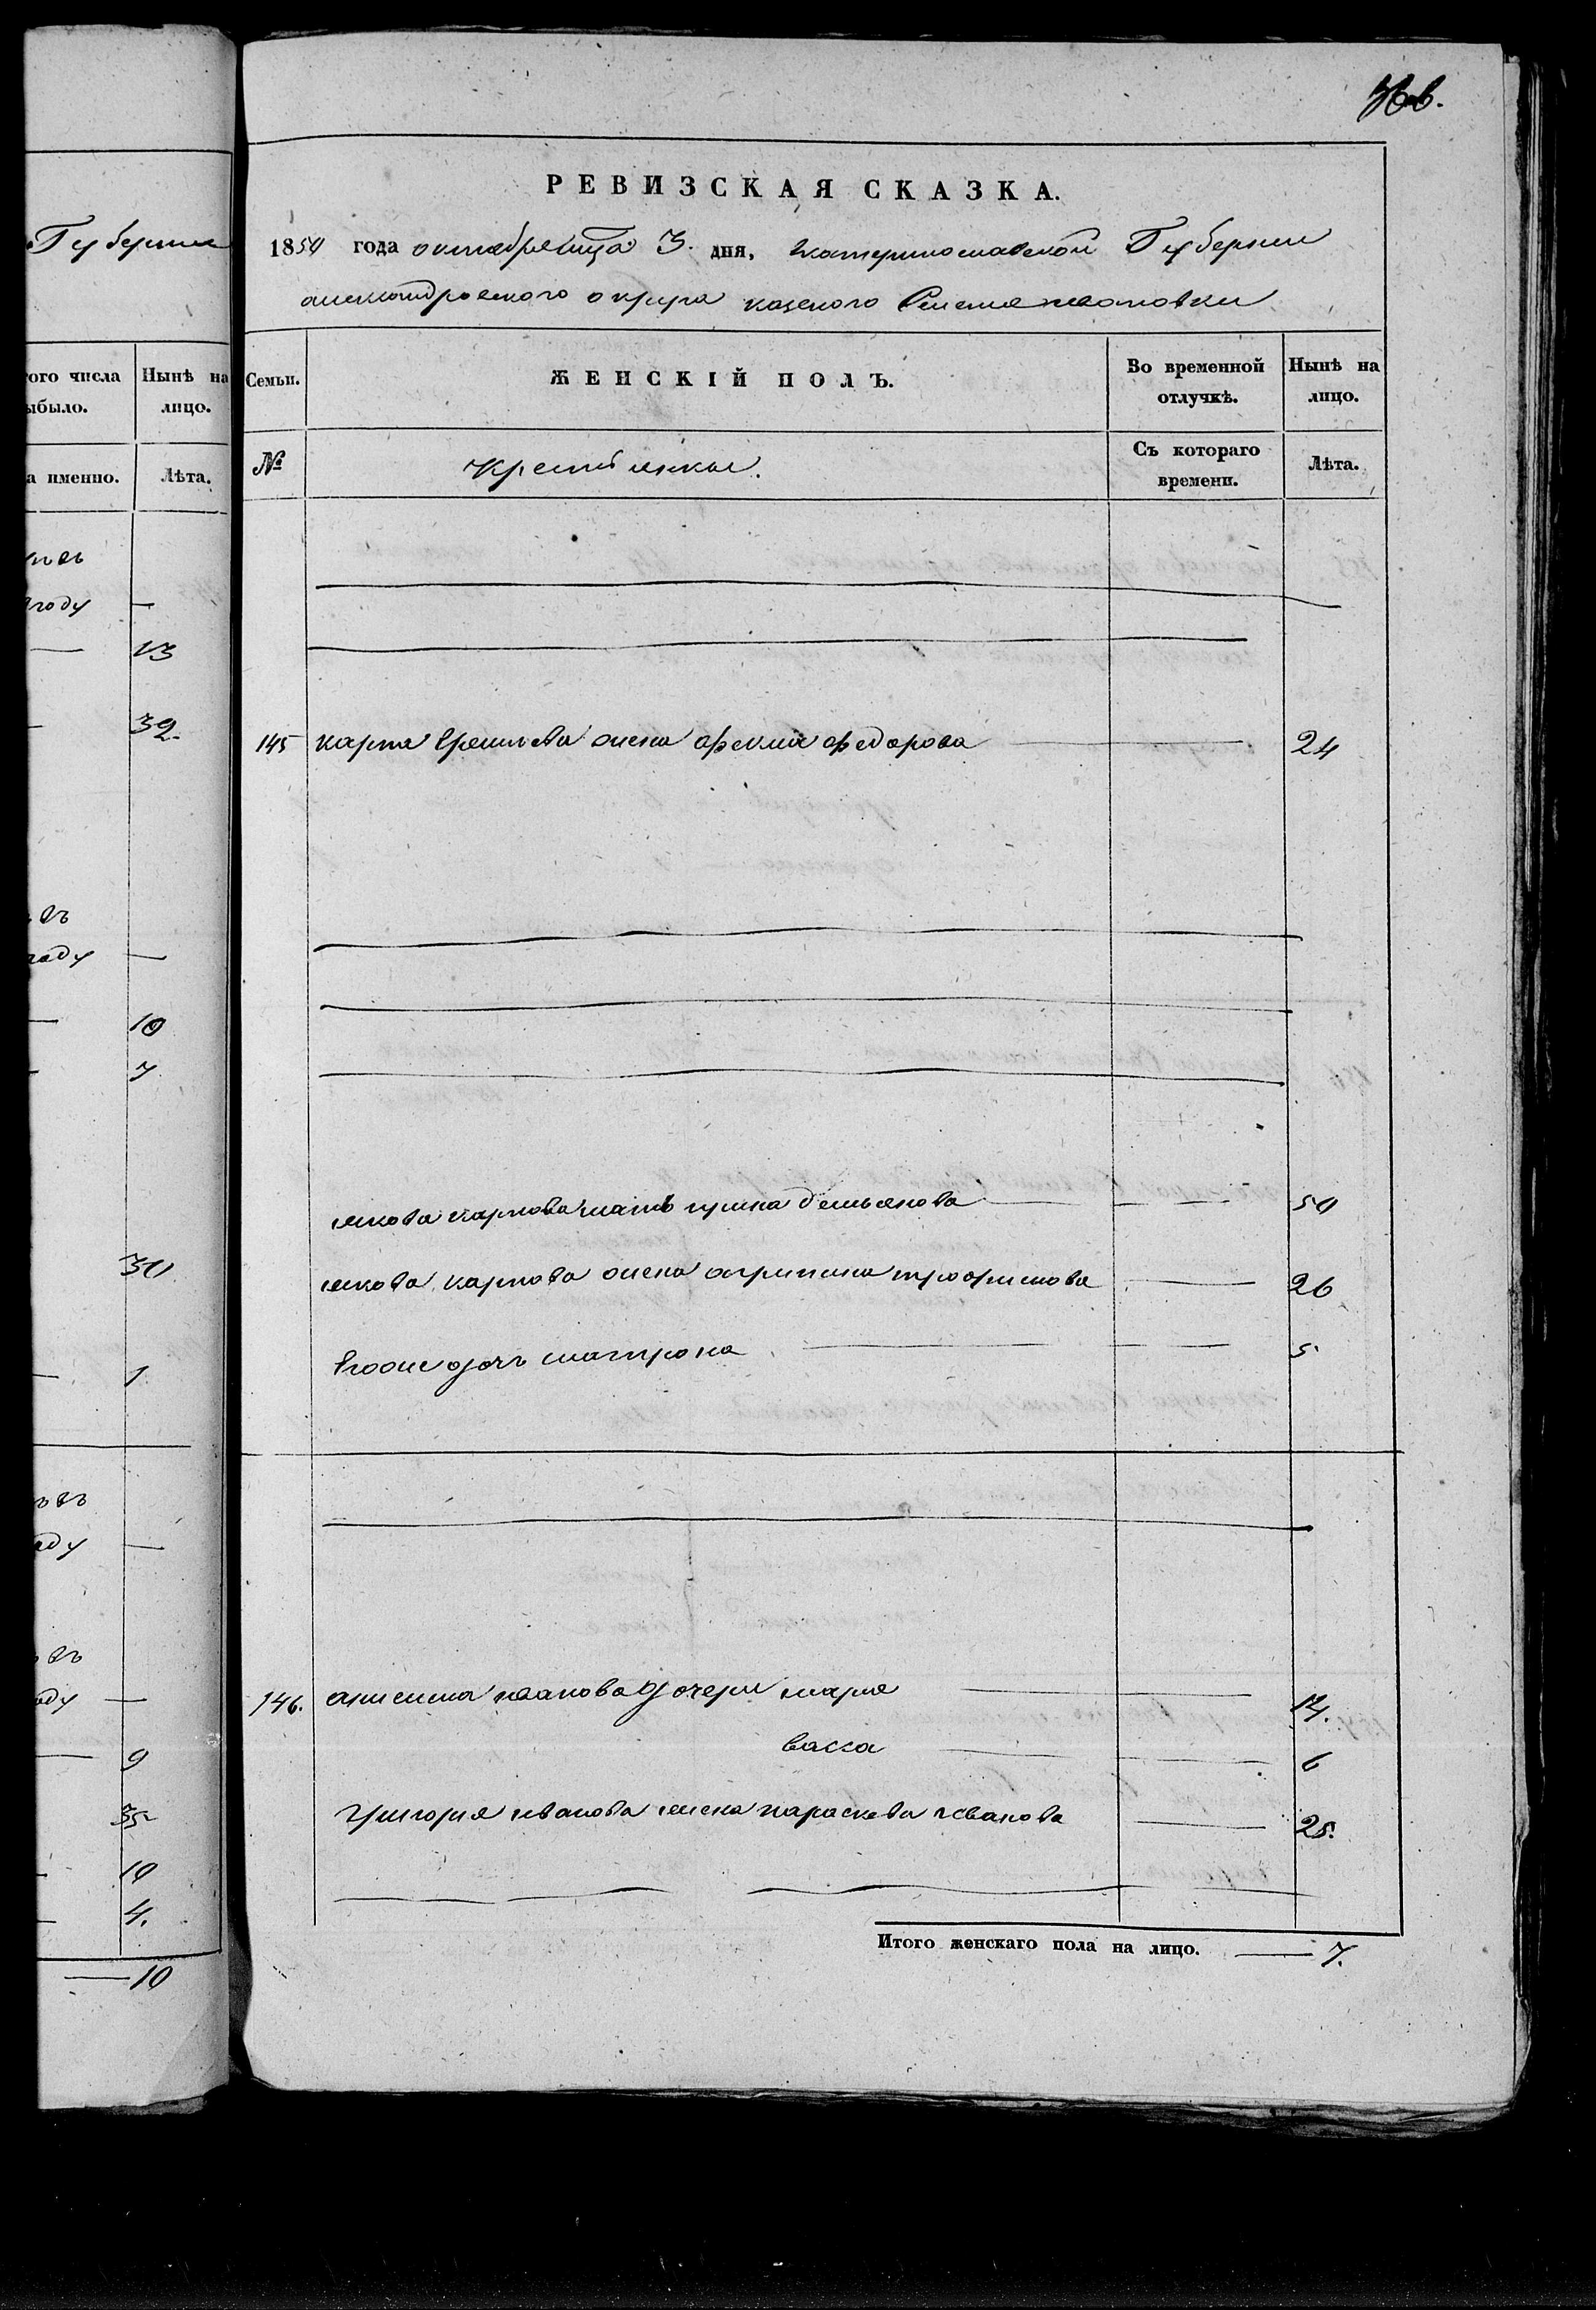 Губернии
того числа
ыбыло.
Нынѣ на
лицо.
а именно.
Лѣта.
году —
13
32.
году —
10
7
30
1
году —
году —
9
35
10
4.
— 10
РЕВИЗСКАЯ СКАЗКА.
1850 года октября месяца 3. дня, Екатеринославской Губернии
александровского округа казеного Селения ивановки
Семьи.
ЖЕНСКІЙ ПОЛЪ.
Во временной
отлучкѣ.
Нынѣ на
лицо.
№
Крестьянки.
Съ котораго
времени.
Лѣта.
145 карпа жена фекла федорова 24
якова карпова мать демьянова 50
якова карпова жена агрипина трофимова 26
его же дочь матрона 5
146. анисима иванова дочери марья 14.
васса 6
григория иванова жена параскева иванова 25.
Итого женскаго пола на лицо. — 7.